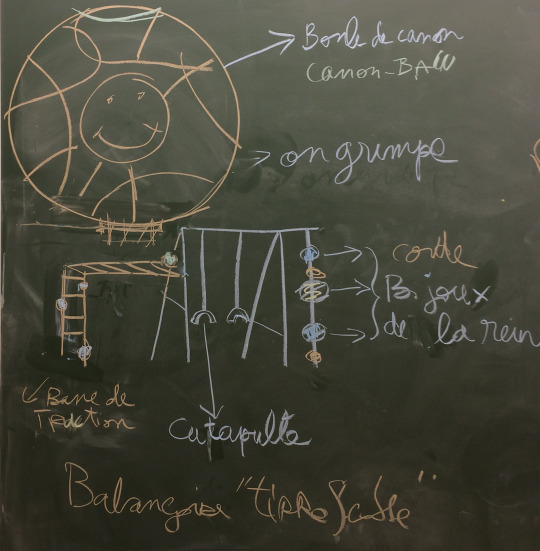 Boule de canon
canon-BAll
on grimpe
corde
Bijoux
de la rein
Barre de
Traction
catapulte
Balançoire "tirro